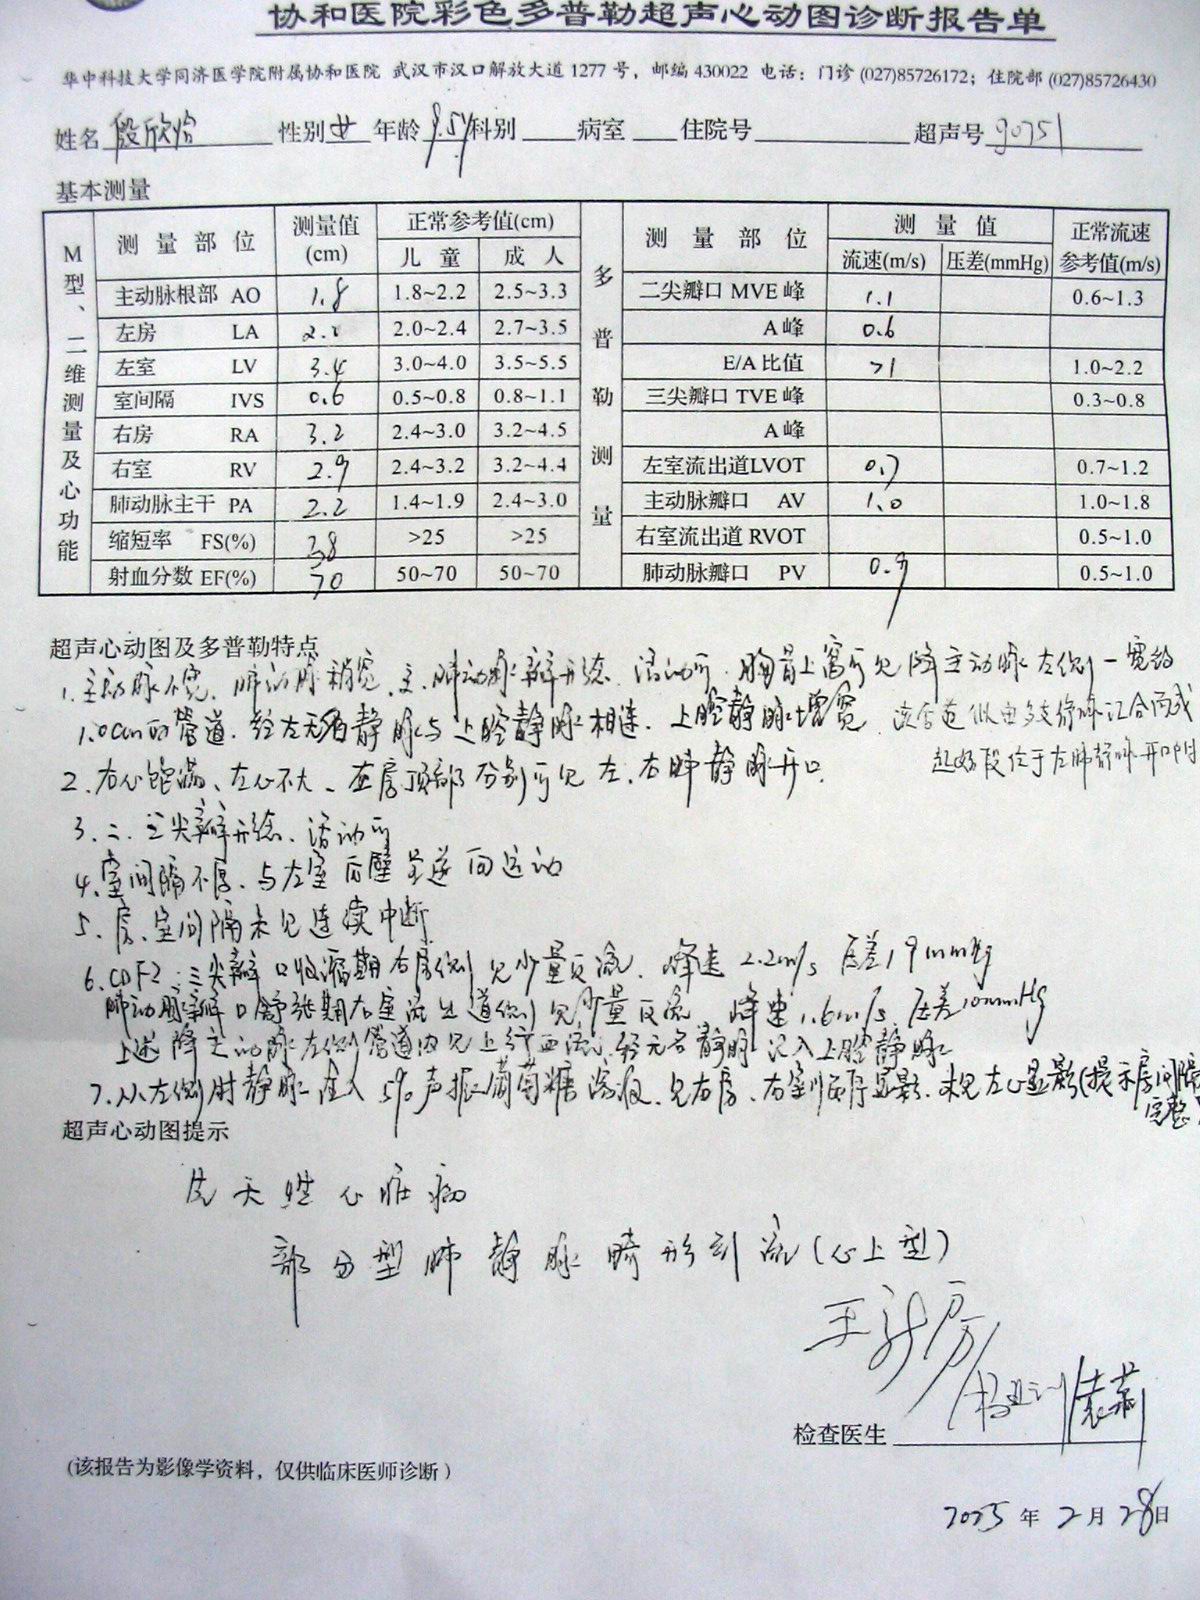 协和医院彩色多普勒超声心动图诊断报告单
华中科技大学同济医学院附属协和医院 武汉市汉口解放大道 1277 号，邮编 430022 电话：门诊 (027)85726172；住院部 (027)85726430
姓名 段欣怡 性别 女 年龄 9.5岁 科别 病室 住院号 超声号 90751
基本测量
M型、二维测量及心功能 测量部位 测量值(cm) 正常参考值(cm) 儿童 成人
主动脉根部 AO 1.8 1.8~2.2 2.5~3.3
左房 LA 2.0~2.4 2.7~3.5
左室 LV 3.4 3.0~4.0 3.5~5.5
室间隔 IVS 0.6 0.5~0.8 0.8~1.1
右房 RA 3.2 2.4~3.0 3.2~4.5
右室 RV 2.9 2.4~3.2 3.2~4.4
肺动脉主干 PA 2.2 1.4~1.9 2.4~3.0
缩短率 FS(%) 38 >25 >25
射血分数 EF(%) 70 50~70 50~70
多普勒测量 测量部位 测量值 流速(m/s) 压差(mmHg) 正常流速参考值(m/s)
二尖瓣口 MVE 峰 1.1 0.6~1.3
A 峰 0.6
E/A 比值 >1 1.0~2.2
三尖瓣口 TVE 峰 0.3~0.8
A 峰
左室流出道LVOT 0.7 0.7~1.2
主动脉瓣口 AV 1.0 1.0~1.8
右室流出道 RVOT 0.5~1.0
肺动脉瓣口 PV 0.9 0.5~1.0
超声心动图及多普勒特点
1. 主动脉不宽、肺动脉稍宽、主、肺动脉瓣形态、活动可. 胸骨上窝可见降主动脉左侧一宽约
1.0cm的管道. 经左无名静脉与上腔静脉相连. 上腔静脉增宽. 该管道似由多支静脉汇合而成
起始段位于左肺静脉开口附
2. 右心饱满、左心不大、左房顶部分别可见左、右肺静脉开口.
3. 二、三尖瓣形态、活动可
4. 室间隔不厚、与左室后壁呈逆向运动
5. 房、室间隔未见连续中断
6. CDFI: 三尖瓣口收缩期右房侧见少量反流. 峰速 2.2m/s 压差19mmHg
肺动脉瓣口舒张期右室流出道侧见少量反流. 峰速1.6m/s. 压差10mmHg
上述降主动脉左侧管道内见上行血流, 经无名静脉汇入上腔静脉
7. 从左侧肘静脉注入 5% 声振葡萄糖溶液. 见右房、右室顺序显影. 未见左心显影(提示房间隔
完整
超声心动图提示
先天性心脏病
部分型肺静脉畸形引流(心上型)
王新房
检查医生
(该报告为影像学资料，仅供临床医师诊断)
年 2 月 28 日